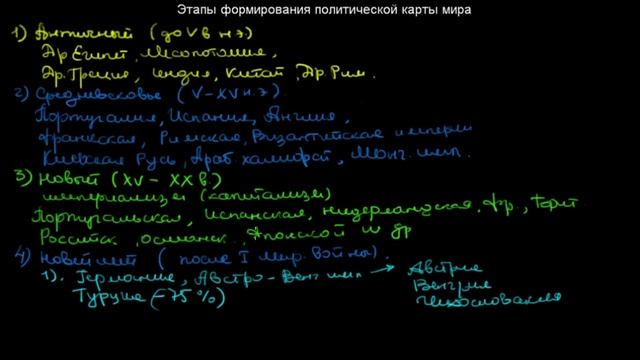 Этапы формирования политической карты мира
1) Античный (до V в н.э)
Др Египет, Месопотамия,
Др.Греция, Индия, Китай, Др. Рим.
2) Средневековье (V-XV н.э).
Португалия, Испания, Англия,
Франкская, Римская, Византийская империи
Киевская Русь, Араб. халифат, Монг. имп.
3) Новый (XV - XX в)
империализм (капитализм)
Португальская, Испанская, Нидерландская, Фр.,
Российск, Османск, Японской и др
4) Новейший (после I мир. войны).
1). Германия, Австро-Венг имп → Австрия
Турция (-75%) Венгрия
Чехословакия